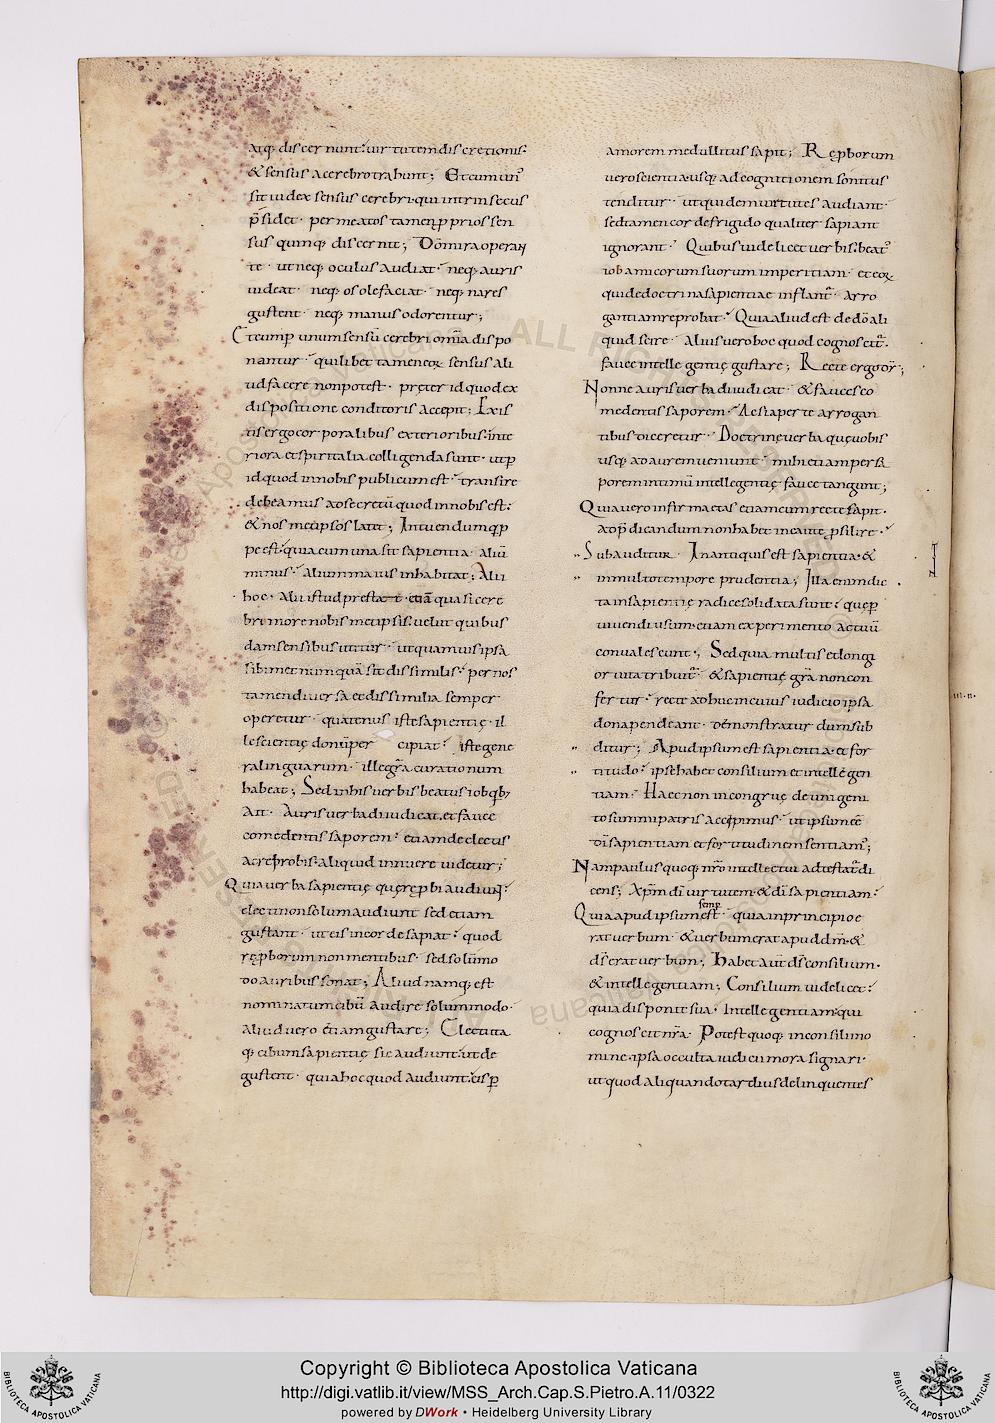 atq; discernunt: uirtutem discretionis.
& sensus a cerebro trahunt; Et cum un'
sit iudex sensus cerebri. qui intrinsecus
p̄sidet. per meatos tamen ꝓprios sen
sus quinq; discernit; D̄o mira operan
te. ut neq; oculus audiat. neq; auris
uideat. neq; os olefaciat. neq; nares
gustent. neq; manus odorentur;
Et cum ꝑ unum sensū cerebri om̄ia dispo
nantur. quilibet tamen eorum sensus ali
ud facere non potest. pręter id quod ex
dispositione conditoris accepit; Ex is
tis ergo corporalibus exterioribus. inte
riora et spiritalia colligenda sunt. ut ꝑ
id quod in nobis publicum est. transire
debeamus ad secretū quod in nobis est.
& nos metipsos latet; Intuendum q̨ꝑ
pe est. quia cum una sit sapientia. aliū
minus. alium magis inhabitat; Alii
hoc. alii istud prestat. etiā quasi cere
bri more nobismetipsis. uelut quibus
dam sensibus utitur. ut quamuis ipsa
sibimet numquā sit dissimilis. per nos
tamen diuersa et dissimilia semper
operetur. quatenus iste sapientię. il
le scientię donū percipiat. iste gene
ra linguarum. ille gr̄a curationum
habeat; Sed in his uerbis beatus iob qb;
Ait. Auris uerba diiudicat. et fauce
comedentis saporem. etiam de electis
ac reprobis. aliquid innuere uidetur;
Quia uerba sapientię quę repbi audiunt.
electi non solum audiunt sed etiam
gustant. ut eis in corde sapiat. quod
reproborum non mentibus. sed solūmo
do auribus sonat; Aliud namq; est
nominatum cibū audire solummodo.
aliud uero etiam gustare; Electi ita
q; cibum sapientię sic audiunt. ut de
gustent. quia hoc quod audiunt. eis ꝑ
amorem medullitus sapit; Reꝓborum
uero scientia usq; ad cognitionem sonitus
tenditur. ut quidem uirtutes audiant.
sed tamen corde frigido qualiter sapiant
ignorant. Quibus uidelicet uerbis beat'
iob amicorum suorum imperitiam. et eorum
qui de doctrina sapientiae inflant̄. arro
gantiam reprobat. Quia aliud est de dō ali
quid scire. Alius uero hoc quod cognoscit̄.
fauce intellegentię gustare; Recte ergo dr̄;
Nonne auris uerba diiudicat. & fauces co
medentis saporem. Ac si aperte arrogan
tibus diceretur. Doctrinę uerba quę uobis
usq; ad aurem ueniunt. mihi etiam per sa
porem intimū intellegentię fauce tangunt;
Quia uero infirma ętas etiam cum recte sapit.
ad p̄dicandum non habet incaute ꝓsilire.
Subauditur. In antiquis est sapientia. &
in multo tempore prudentia; Illa enim dic
ta in sapientię radice solidata sunt. quę ꝑ
uiuendi usum. etiam experimento actuū
conualescunt. Sed quia multis et longi
or uita tribuit̄. & sapientię gr̄a non con
fertur. recte adhuc in cuius iudicio ipsa
dona pendeant. demonstratur dum sub
ditur; Apud ipsum est sapientia. et for
titudo. ipse habet consilium et intellegen
tiam. Haec non incongruę de unigeni
to summi patris accipimus. ut ipsum eē
dī sapientiam et fortitudinem sentiam';
Nam paulus quoq; nr̄o intellectui adtestat̄ di
cens; Xp̄m dī uirtutem. & dī sapientiam.
Quia apud ipsum semp est. quia in principio e
rat uerbum. & uerbum erat apud dm̄. &
ds̄ erat uerbum; Habet aut̄ ds̄ consilium.
& intellegentiam; Consilium uidelicet.
quia disponit sua. Intellegentiam. qui
a cognoscit nr̄a. Potest quoq; in consilii no
mine. ipsa occulta iudicii mora signari.
ut quod aliquando tardius delinquentes
Copyright © Biblioteca Apostolica Vaticana
http://digi.vatlib.it/view/MSS_Arch.Cap.S.Pietro.A.11/0322
powered by DWork • Heidelberg University Library